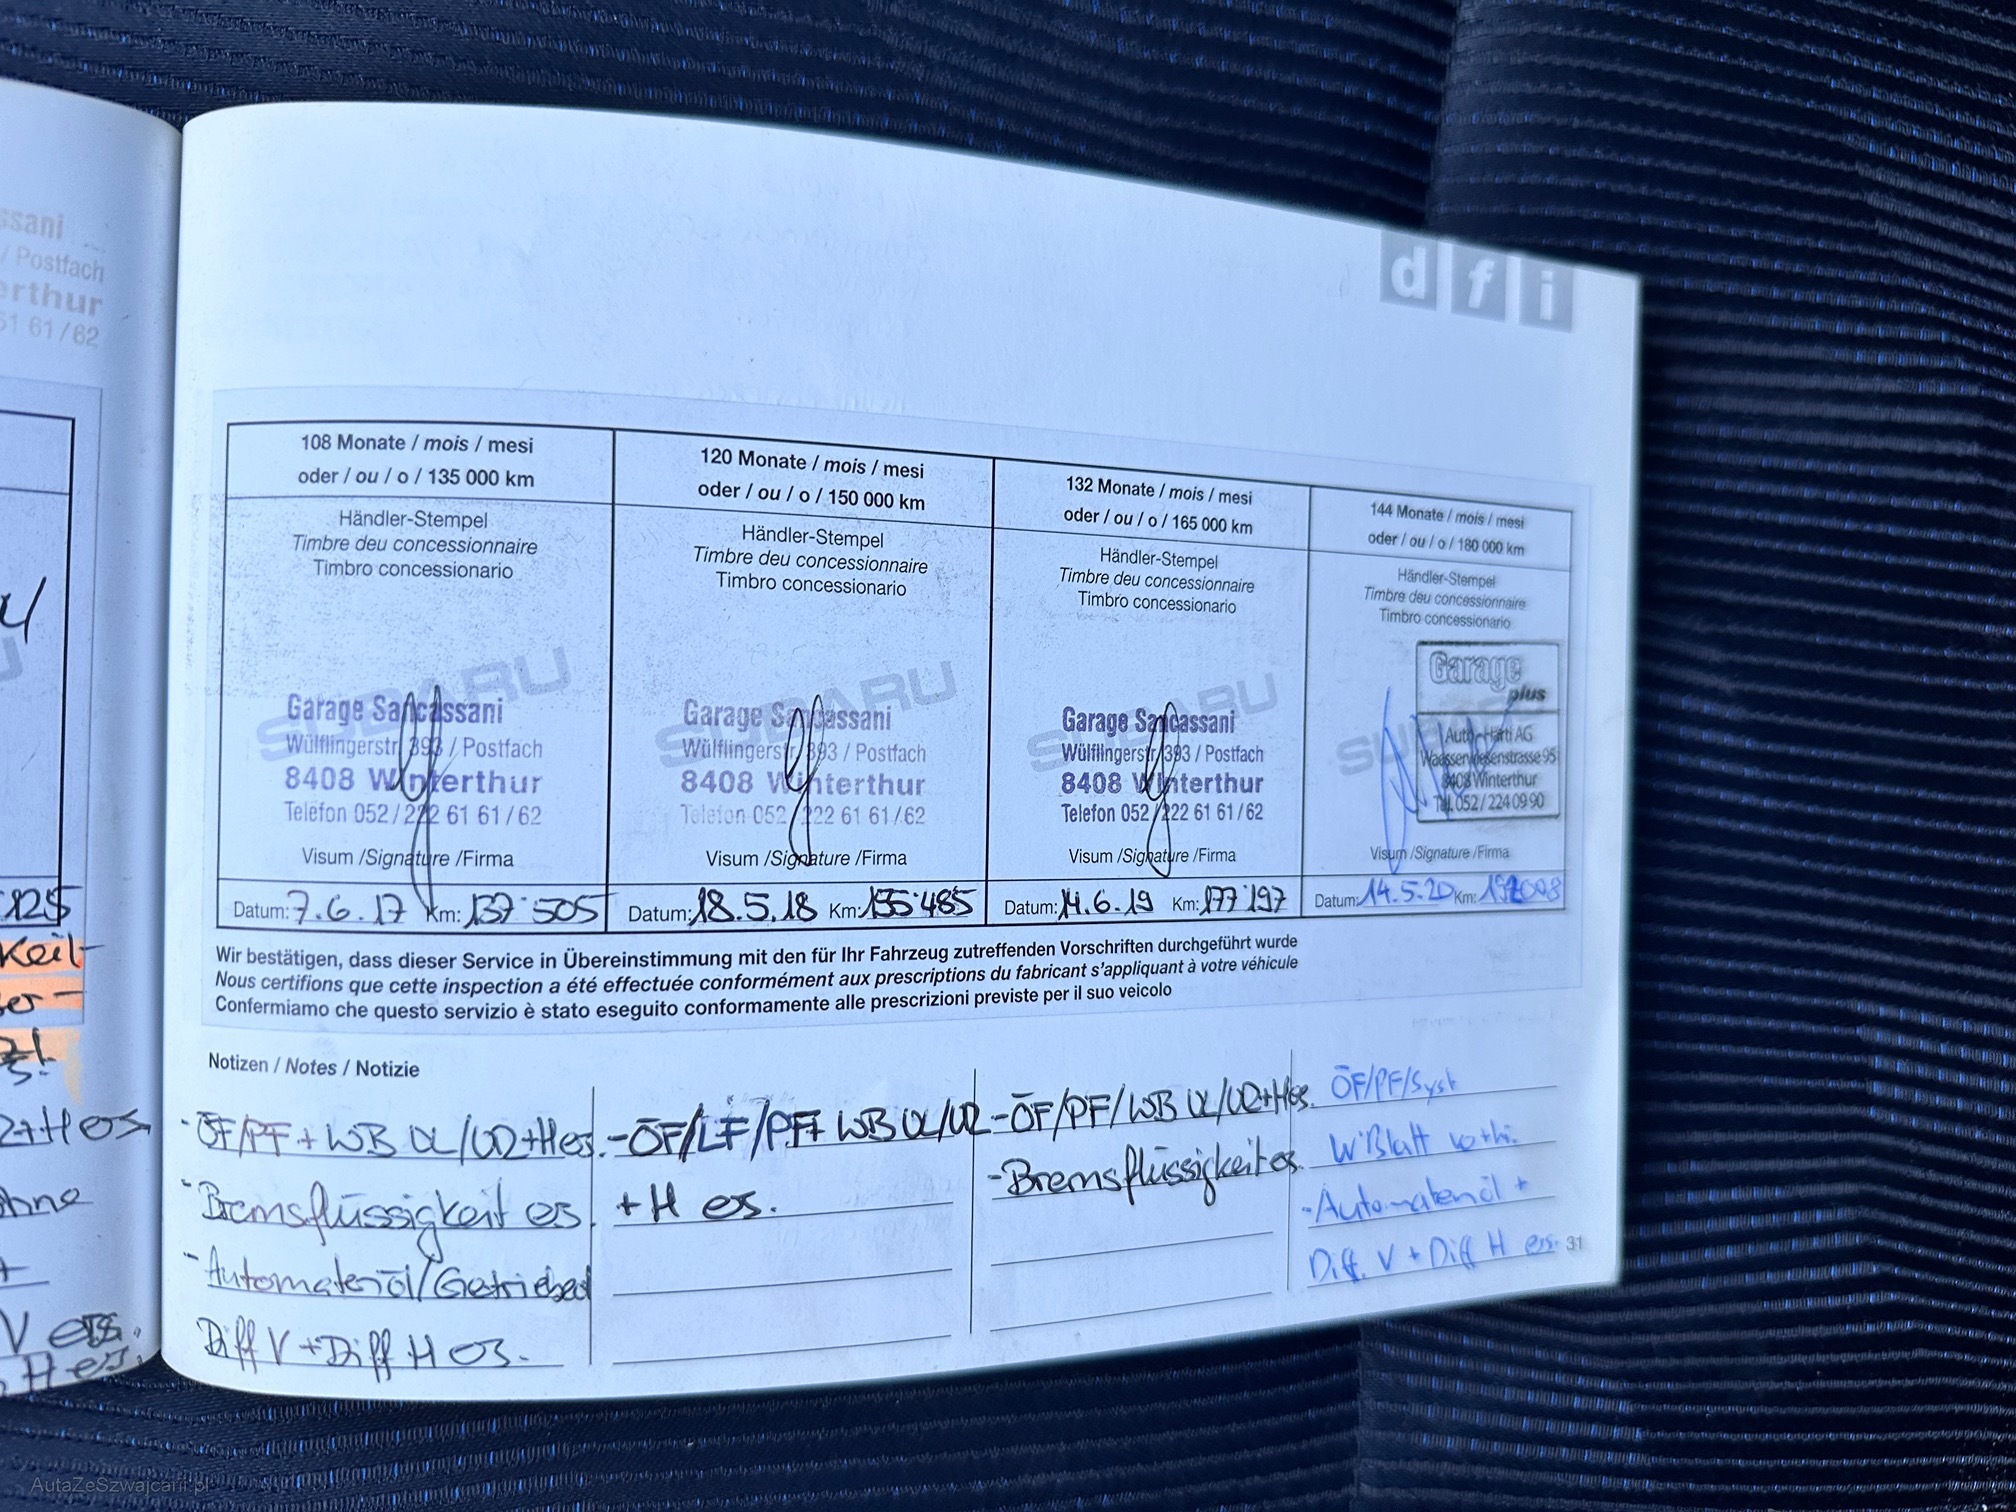 ssani
/ Postfach
erthur
61 61/62
125
Keil-
er-
z!
2+H es
ohne
V ers.
H es.
d f i
108 Monate / mois / mesi
oder / ou / o / 135 000 km
Händler-Stempel
Timbre deu concessionnaire
Timbro concessionario
SUBARU
Garage Sancassani
Wülflingerstr. 393 / Postfach
8408 Winterthur
Telefon 052 / 222 61 61 / 62
Visum /Signature /Firma
Datum: 7.6.17 Km: 137'505
120 Monate / mois / mesi
oder / ou / o / 150 000 km
Händler-Stempel
Timbre deu concessionnaire
Timbro concessionario
SUBARU
Garage Sancassani
Wülflingerstr. 393 / Postfach
8408 Winterthur
Telefon 052 / 222 61 61 / 62
Visum /Signature /Firma
Datum: 18.5.18 Km: 155'485
132 Monate / mois / mesi
oder / ou / o / 165 000 km
Händler-Stempel
Timbre deu concessionnaire
Timbro concessionario
SUBARU
Garage Sancassani
Wülflingerstr. 393 / Postfach
8408 Winterthur
Telefon 052 / 222 61 61 / 62
Visum /Signature /Firma
Datum: 14.6.19 Km: 177'197
144 Monate / mois / mesi
oder / ou / o / 180 000 km
Händler-Stempel
Timbre deu concessionnaire
Timbro concessionario
SUBARU
Garage
plus
Auto-Härti AG
95
8408 Winterthur
Tel. 052 / 224 09 90
Visum /Signature /Firma
Datum: 14.5.20 Km:
Wir bestätigen, dass dieser Service in Übereinstimmung mit den für Ihr Fahrzeug zutreffenden Vorschriften durchgeführt wurde
Nous certifions que cette inspection a été effectuée conformément aux prescriptions du fabricant s'appliquant à votre véhicule
Confermiamo che questo servizio è stato eseguito conformamente alle prescrizioni previste per il suo veicolo
Notizen / Notes / Notizie
- ÖF/PF + WB UL/UR+H es.
- Bremsflüssigkeit es.
- Automatenöl/Getriebeöl
Diff V + Diff H es.
- ÖF/LF/PF+ WB UL/UR
+ H es.
- ÖF/PF/WB UL/UR+H es.
- Bremsflüssigkeit es.
ÖF/PF/Syst
W'Blatt v+hi.
- Automatenöl +
Diff. V + Diff H ers.
31
AutaZeSzwajcarii.pl